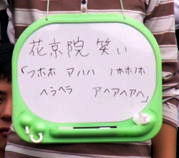 花京院 笑い
「ウホホ アハハ ノホホノホ
ヘラヘラ アヘアヘアヘ」